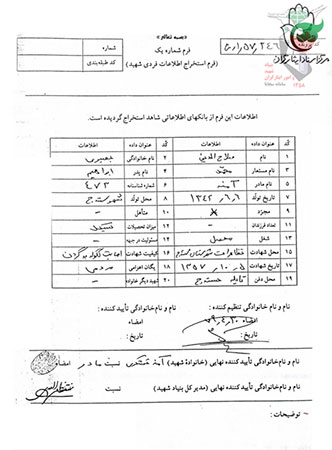 «بسمه تعالی»
فرم شماره یک
(فرم استخراج اطلاعات فردی شهید)
شماره
کد طبقه‌بندی
مرکز اسناد ایثارگران
اطلاعات این فرم از بانکهای اطلاعاتی شاهد استخراج گردیده است.
کد عنوان داده اطلاعات کد عنوان داده اطلاعات
۱ نام صلاح الدین ۲ نام خانوادگی
۳ نام مستعار ۴ نام پدر ابراهیم
۵ نام مادر آمنه ۶ شماره شناسنامه ۴۷۳
۷ تاریخ تولد ۱۳۴۲/۶/۶ ۸ محل تولد سنندج
۹ مجرد × ۱۰ متأهل -
۱۱ تعداد فرزندان - ۱۲ میزان تحصیلات
۱۳ شغل محصل ۱۴ مسئولیت در جبهه -
۱۵ محل شهادت ۱۶ کیفیت شهادت اصابت گلوله به گردن
۱۷ تاریخ شهادت ۱۳۵۷/۱۰/۵ ۱۸ یگان اعزامی مردمی
۱۹ محل دفن سنندج ۲۰ شهید دیگر خانواده -
نام و نام خانوادگی تنظیم کننده:
نام و نام خانوادگی تأیید کننده:
امضاء
امضاء
تاریخ:
تاریخ:
نام و نام خانوادگی تأیید کننده نهایی (خانوادۀ شهید) آمنه نسبت مادر امضاء
نام و نام خانوادگی تأیید کننده نهایی (مدیر کل بنیاد شهید) نسبت
- توضیحات: